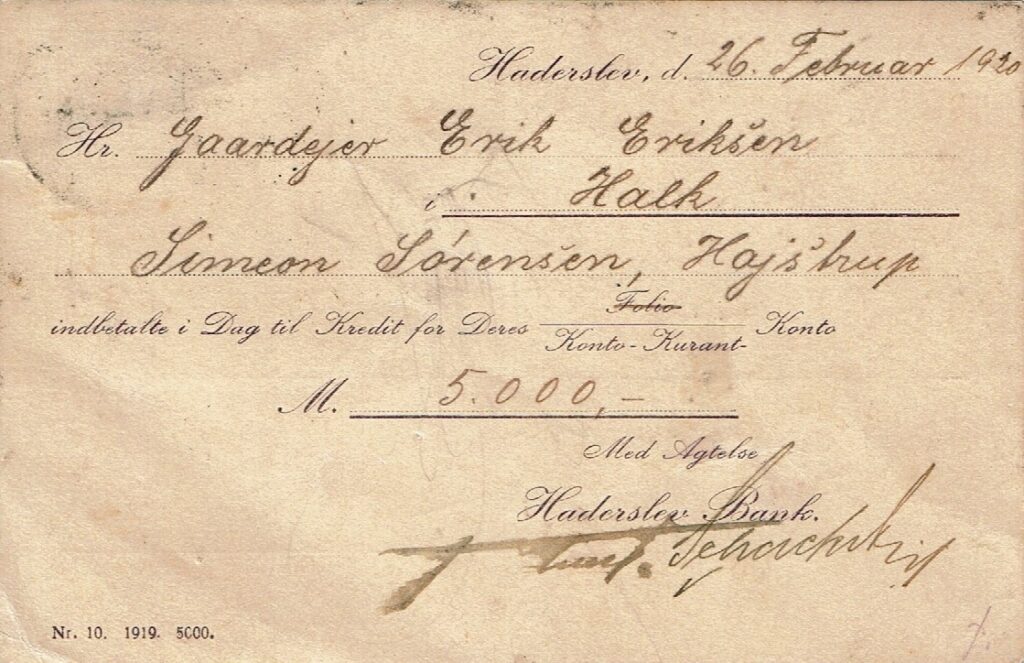 Haderslev, d. 26. Februar 1920
Hr. Gaardejer Erik Eriksen
i Halk
Simeon Sørensen, Hajstrup
indbetalte i Dag til Kredit for Deres Folio Konto
Konto-Kurant-
M. 5.000,-
Med Agtelse
Haderslev Bank.
Nr. 10. 1919. 5000.